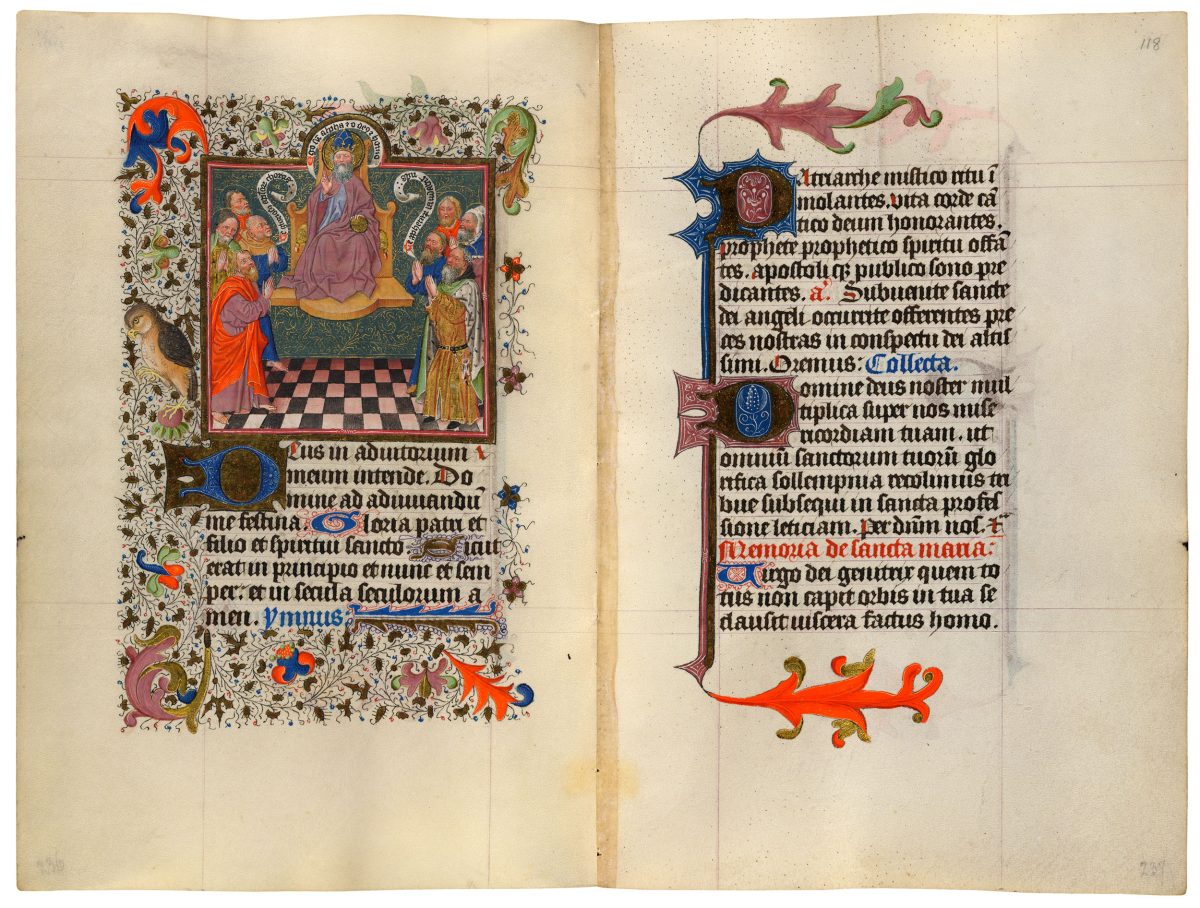 Deus in adiutorium
meum intende. Do
mine ad adiuuandū
me festina. Gloria patri et
filio et spiritui sancto. Sicut
erat in principio et nunc et sem
per. et in secula seculorum a
men. ymnus:
236
118
Patriarche mistico ritu ī
molantes. vita corde cā
tico deum honorantes.
prophete prophetico spiritu offā
tes. apostoli qꝫ publico sono pre
dicantes. a. Subuenite sancte
dei angeli occurrite offerentes pre
ces nostras in conspectu dei altis
simi. Oremus: Collecta.
Domine deus noster mul
tiplica super nos mise
ricordiam tuam. ut
omniū sanctorum tuorū glo
rifica sollempnia recolimus tri
bue subsequi in sancta profes
sione leticiam. Per dūm nos.
Memoria de sancta maria:
Virgo dei genitrix quem to
tus non capit orbis in tua se
clausit uiscera factus homo.
237